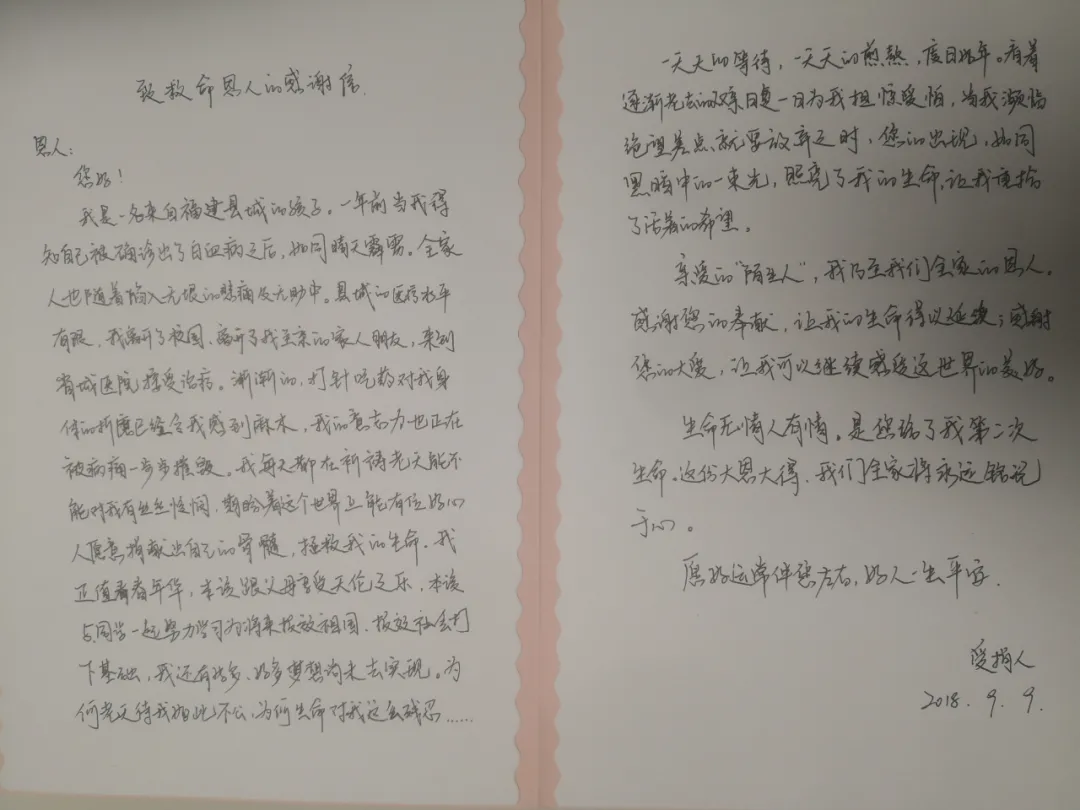 致救命恩人的感谢信.
恩人:
您好!
我是一名来自福建县城的孩子。一年前当我得
知自己被确诊出了白血病之后,如同晴天霹雳。全家
人也随着陷入无垠的悲痛及无助中。县城的医疗水平
有限,我离开了校园、离开了我至亲的家人朋友,来到
省城医院接受治病。渐渐的,打针吃药对我身
体的折磨已经令我感到麻木,我的意志力也正在
被病痛一步步摧毁。我每天都在祈祷老天能不
能对我有丝丝怜悯,期盼着这个世界上能有位好心
人愿意捐献出自己的骨髓,拯救我的生命。我
正值青春年华,本该跟父母享受天伦之乐,本该
与同学一起努力学习为将来报效祖国、报效社会打
下基础,我还有许多、好多梦想尚未去实现。为
何老天待我如此不公,为何生命对我这么残忍……
一天天的等待,一天天的煎熬,度日如年。看着
逐渐老去的双亲日复一日为我担惊受怕,当我濒临
绝望差点就要放弃之时,您的出现,如同
黑暗中的一束光,照亮了我的生命,让我重拾
了活着的希望。
亲爱的“陌生人”,我乃至我们全家的恩人。
感谢您的奉献,让我的生命得以延续;感谢
您的大爱,让我可以继续感受这世界的美好。
生命无情人有情。是您给了我第二次
生命。这份大恩大得,我们全家将永远铭记
于心。
愿好运常伴您左右,好人一生平安.
受捐人
2018.9.9.